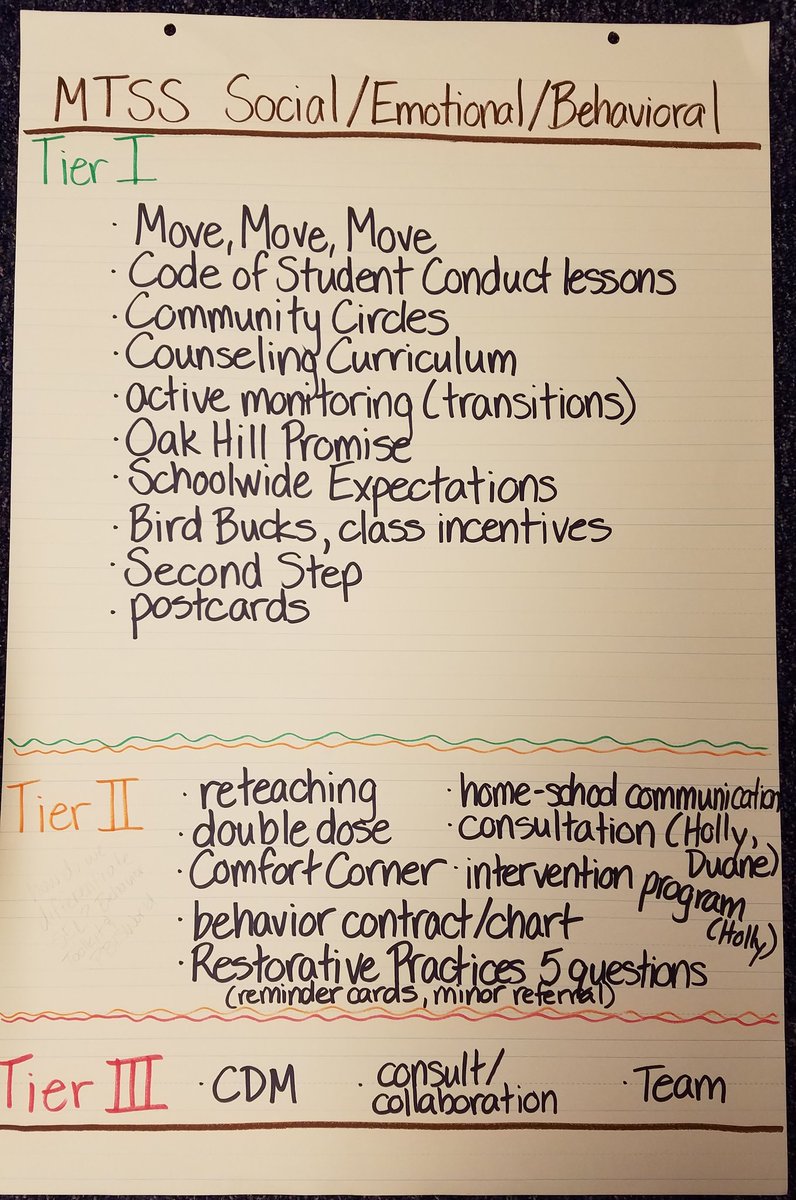 MTSS Social/Emotional/Behavioral
Tier I
· Move, Move, Move
· Code of Student Conduct lessons
· Community Circles
· Counseling Curriculum
· active monitoring (transitions)
· Oak Hill Promise
· Schoolwide Expectations
· Bird Bucks, class incentives
· Second Step
· postcards
Tier II
· reteaching
· double dose
· Comfort Corner
· behavior contract/chart
· Restorative Practices 5 questions
(reminder cards, minor referral)
· home-school communication
· consultation (Holly,
Duane)
· intervention program
(Holly)
how do we
differentiate
Tier III
· CDM
· consult/
collaboration
· Team